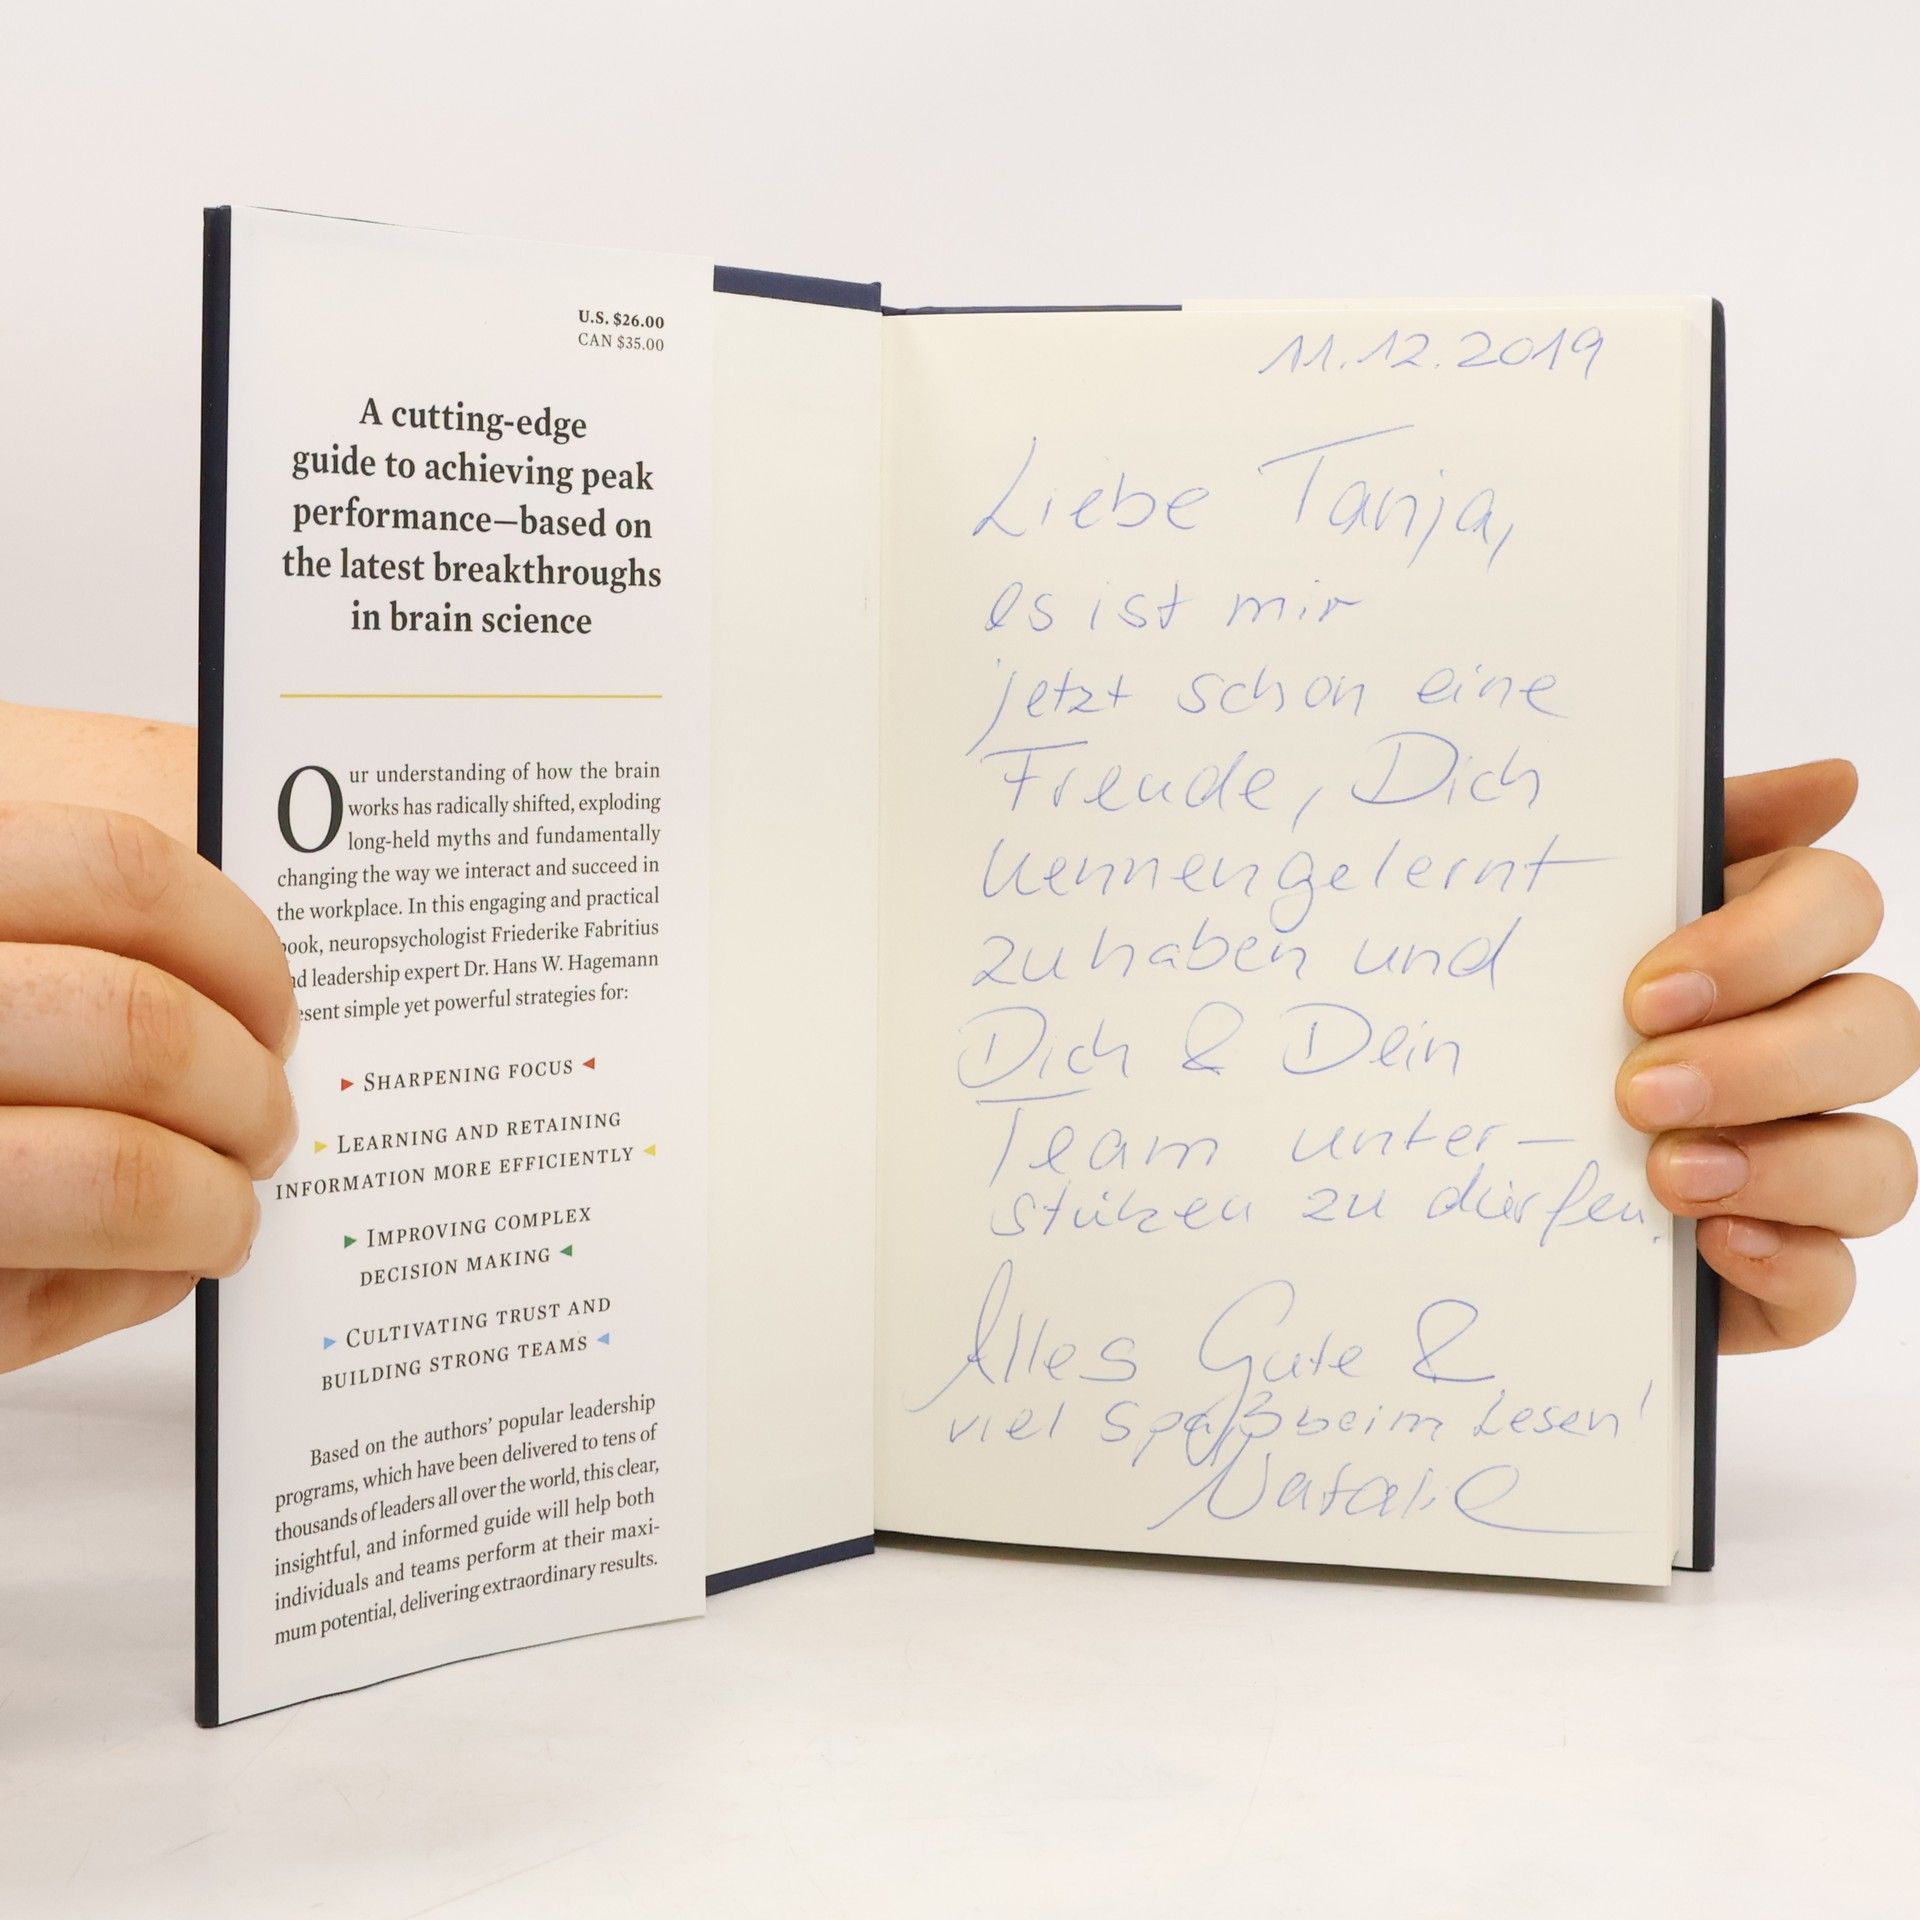 U.S. $26.00
CAN $35.00
A cutting-edge
guide to achieving peak
performance—based on
the latest breakthroughs
in brain science
Our understanding of how the brain
works has radically shifted, exploding
long-held myths and fundamentally
changing the way we interact and succeed in
the workplace. In this engaging and practical
ook, neuropsychologist Friederike Fabritius
nd leadership expert Dr. Hans W. Hagemann
esent simple yet powerful strategies for:
▶ SHARPENING FOCUS ◀
▶ LEARNING AND RETAINING
INFORMATION MORE EFFICIENTLY ◀
▶ IMPROVING COMPLEX
DECISION MAKING ◀
▶ CULTIVATING TRUST AND
BUILDING STRONG TEAMS ◀
Based on the authors' popular leadership
programs, which have been delivered to tens of
thousands of leaders all over the world, this clear,
insightful, and informed guide will help both
individuals and teams perform at their maxi-
mum potential, delivering extraordinary results.
11.12.2019
Liebe Tanja,
es ist mir
jetzt schon eine
Freude, Dich
kennengelernt
zu haben und
Dich & Dein
Team unter-
stützen zu dürfen.
Alles Gute &
viel Spaß beim Lesen!
Natalie